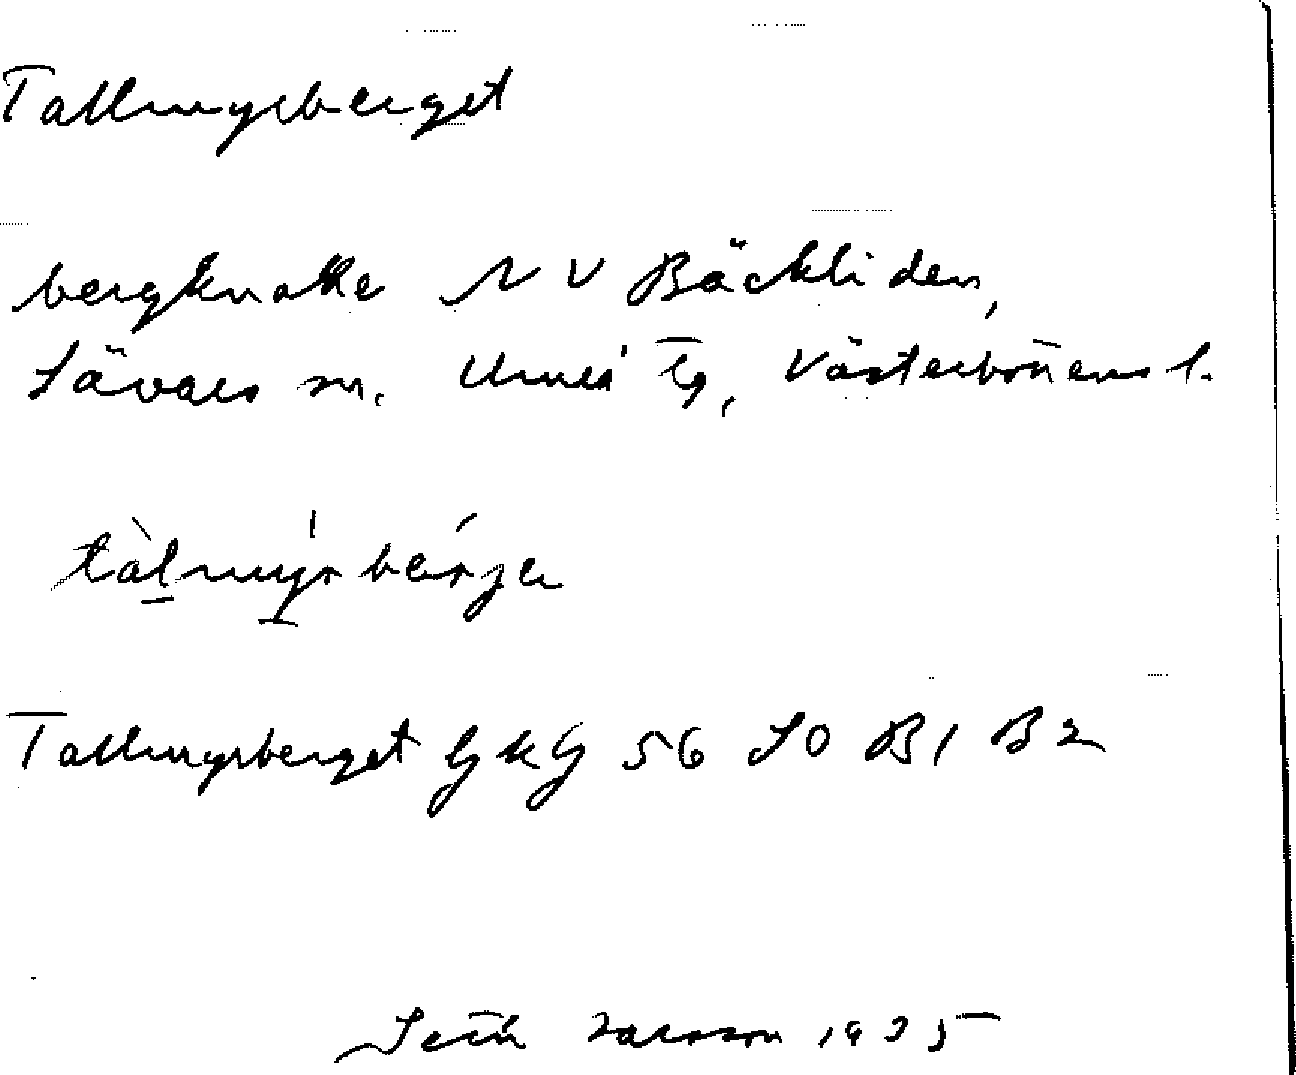 Tallmyrberget
bergknalle NV Bäckliden,
Sävars sn. Umeå Tg, Västerbottens l.
tàlmýrbérje
Tallmyrberget GKG 56 SO B1 B2
Seth Larsson 1935